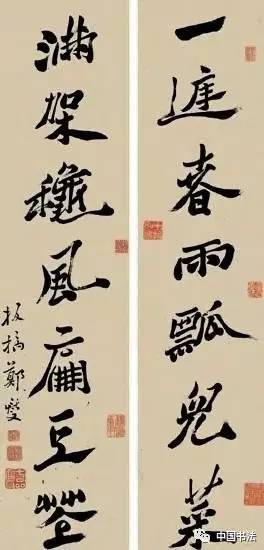 一庭春雨瓢兒菜
滿架秋風扁豆花
板橋鄭燮
中国书法